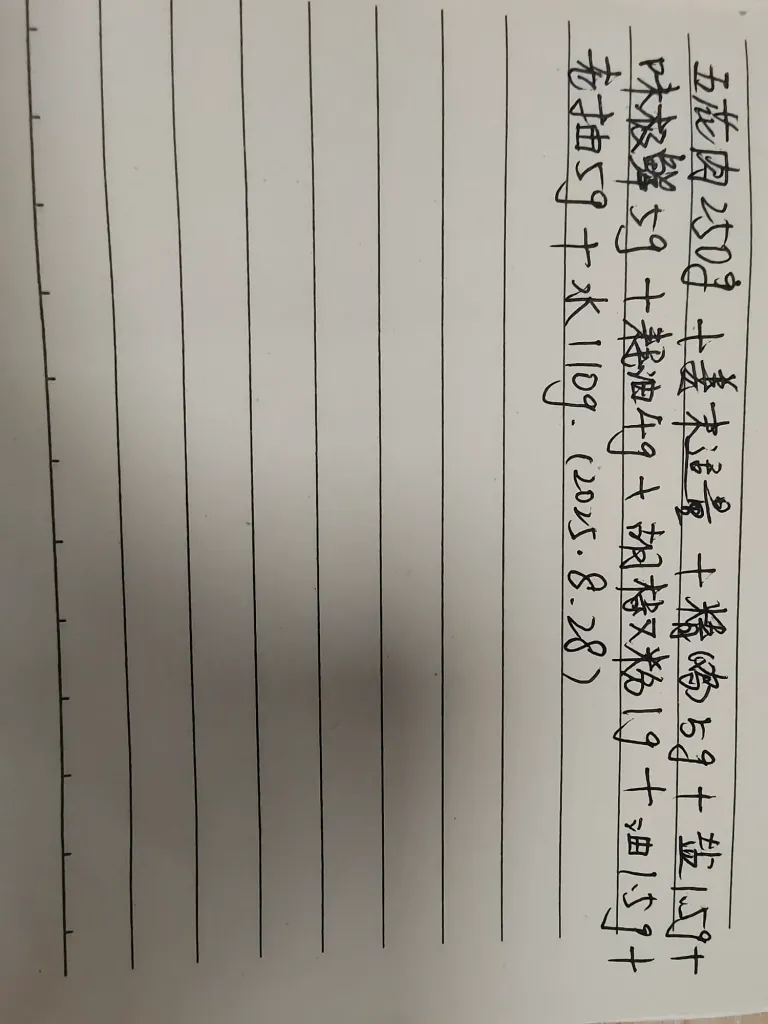 五花肉250g+姜末适量+糖(鸡)5g+盐1.5g+
味极鲜5g+耗油4g+胡椒粉1g+油1.5g+
老抽5g+水110g.(2025.8.28)